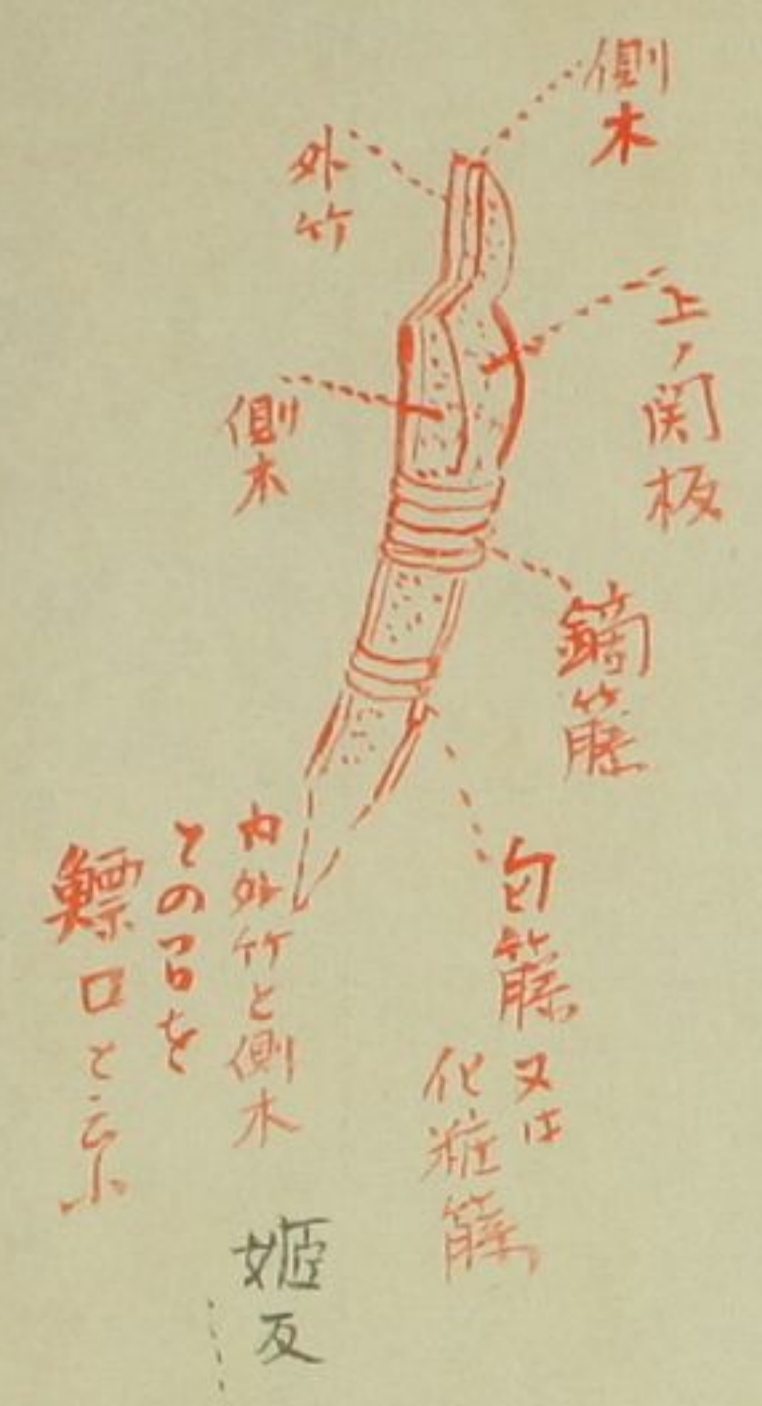 側木
外竹
上ノ関板
側木
鏑籐
匂籐又は
化粧籐
内外竹と側木
との口を
鰾口と云ふ
姫反